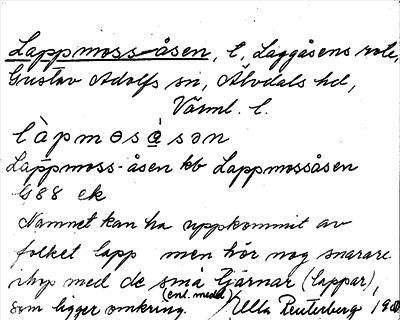 Lappmoss-åsen, l, Laggåsens rote,
Gustav Adolfs sn, Älvdals hd,
Värml. l.
làpmosåsən
Lappmoss-åsen kb Lappmossåsen
G88 ek
Namnet kan ha uppkommit av
folket lapp men hör nog snarare
ihop med de små tjärnar (lappar),
som ligger omkring. (enl. medd.) Ulla Reuterberg